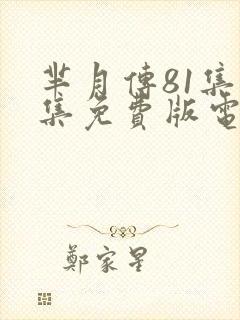 芈月傳81集
集免費版電
鄭家星